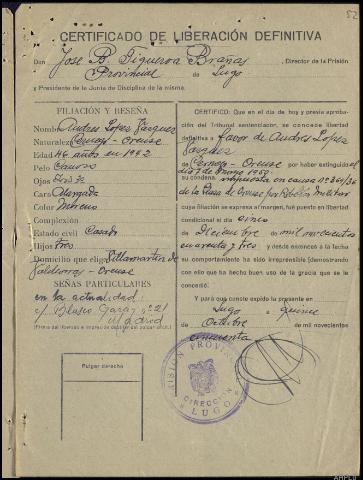 CERTIFICADO DE LIBERACIÓN DEFINITIVA
Don José B. Figueroa Brañas, Director de la Prisión
Provincial de Lugo
y Presidente de la Junta de Disciplina de la misma.
FILIACIÓN Y RESEÑA
Nombre Andres Lopez Vazquez
Naturaleza - Orense
Edad 46 años en 1942
Pelo Canoso
Ojos
Cara Alargada
Color Moreno
Complexión
Estado civil Casado
Hijos tres
Domicilio que eligió Villamartin de
Valdeorras - Orense
SEÑAS PARTICULARES
en la actualidad
c/ Blasco Garay, nº 21
Madrid
(Firma del liberado e impresión del pulgar)
Pulpar derecho
CERTIFICO: Que en el día de hoy y previa aprobación
del Tribunal sentenciador, se concede libertad
definitiva a favor de Andres Lopez
Vazquez
de - Orense por haber extinguido el
día 7 de 1950
su condena, impuesta en causa nº 364/36
de la Plaza de Orense por Rebelión militar
cuya filiación se expresa al margen, fué puesto en libertad
condicional el día cinco
de Diciembre de mil novecientos
cuarenta y tres y desde entonces a la fecha
su comportamiento ha sido irreprensible (demostrando
con ello que ha hecho buen uso de la gracia que se le
concedió).
Y para que conste expido la presente en
Lugo a quince
de Octubre de mil novecientos
cincuenta
PRISIÓN PROVINCIAL
DIRECCIÓN
LUGO